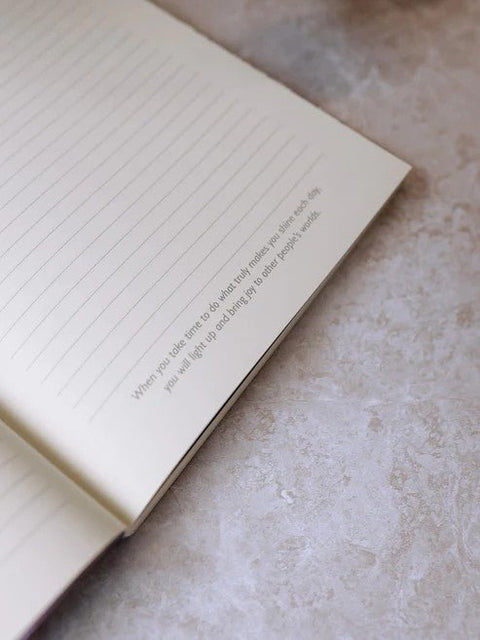 When you take time to do what truly makes you shine each day,
you will light up and bring joy to other people's worlds.